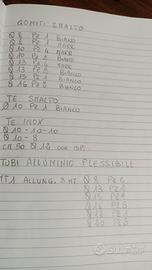 GOMITI SMALTO
Ø 8 PZ 1 BIANCO
Ø 8 PZ 1 MARR
Ø 10 PZ 4 MARR
Ø 10 PZ 3 BIANCO
Ø 13 PZ 4 MARR
Ø 13 PZ BIANCO
Ø 15 PZ BIANCO
Ø 16 PZ 8 BIANCO
TE SMALTO
Ø 10 PZ 1 BIANCO
TE INOX
Ø 10 - 10 - 10
Ø 10 - 8
CM 50 Ø 18 CON
TUBI ALLUMINIO FLESSIBILE
ALLUNG. 3 MT Ø 8 PZ 6
Ø 13 PZ
Ø 15 PZ
Ø 16 PZ
Ø 18 PZ
Ø PZ
Ø 30 PZ
subito